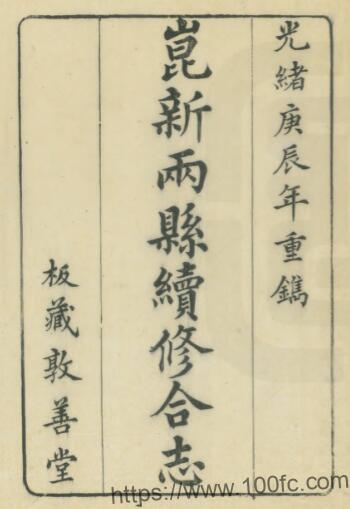 光緒庚辰年重鐫
崑新兩縣續修合志
板藏敦善堂
https://www.100fc.com